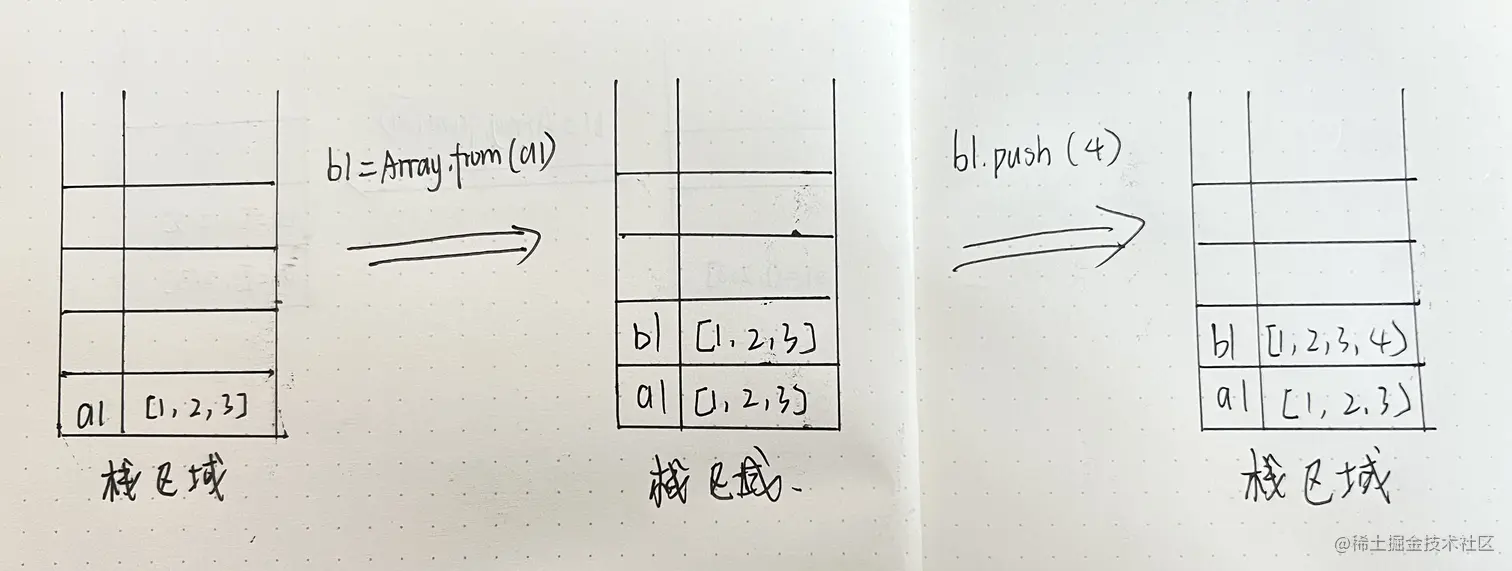 b1=Array.from(a1)
b1.push(4)
a1 [1,2,3]
栈区域
b1 [1,2,3]
a1 [1,2,3]
栈区域
b1 [1,2,3,4)
a1 [1,2,3)
栈区域
@稀土掘金技术社区